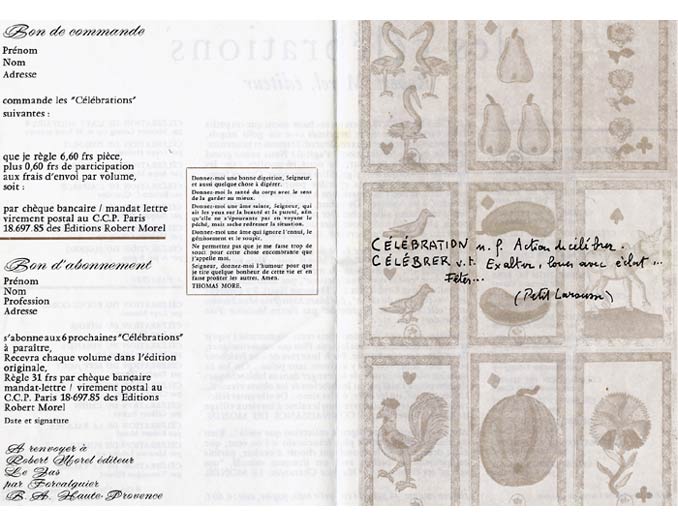 Bon de commande
Prénom
Nom
Adresse
commande les "Célébrations"
suivantes :
que je règle 6,60 frs pièce,
plus 0,60 frs de participation
aux frais d'envoi par volume,
soit :
par chèque bancaire / mandat lettre
virement postal au C.C.P. Paris
18.697.85 des Éditions Robert Morel
Bon d'abonnement
Prénom
Nom
Profession
Adresse
s'abonne aux 6 prochaines "Célébrations"
à paraître,
Recevra chaque volume dans l'édition
originale,
Règle 31 frs par chèque bancaire
mandat-lettre / virement postal au
C.C.P. Paris 18-697.85 des Editions
Robert Morel
Date et signature
A renvoyer à
Robert Morel éditeur
Le Jas
par Forcalquier
B. A. Haute-Provence
Donnez-moi une bonne digestion, Seigneur,
et aussi quelque chose à digérer.
Donnez-moi la santé du corps avec le sens
de la garder au mieux.
Donnez-moi une âme sainte, Seigneur, qui
ait les yeux sur la beauté et la pureté, afin
qu'elle ne s'épouvante pas en voyant le
péché, mais sache redresser la situation.
Donnez-moi une âme qui ignore l'ennui, le
gémissement et le soupir.
Ne permettez pas que je me fasse trop de
souci pour cette chose encombrante que
j'appelle moi.
Seigneur, donnez-moi l'humour pour que
je tire quelque bonheur de cette vie et en
fasse profiter les autres. Amen.
THOMAS MORE.
CÉLÉBRATION n. f. Action de célébrer.
CÉLÉBRER v. t. Exalter, louer avec éclat...
Fêter...
(Petit Larousse)